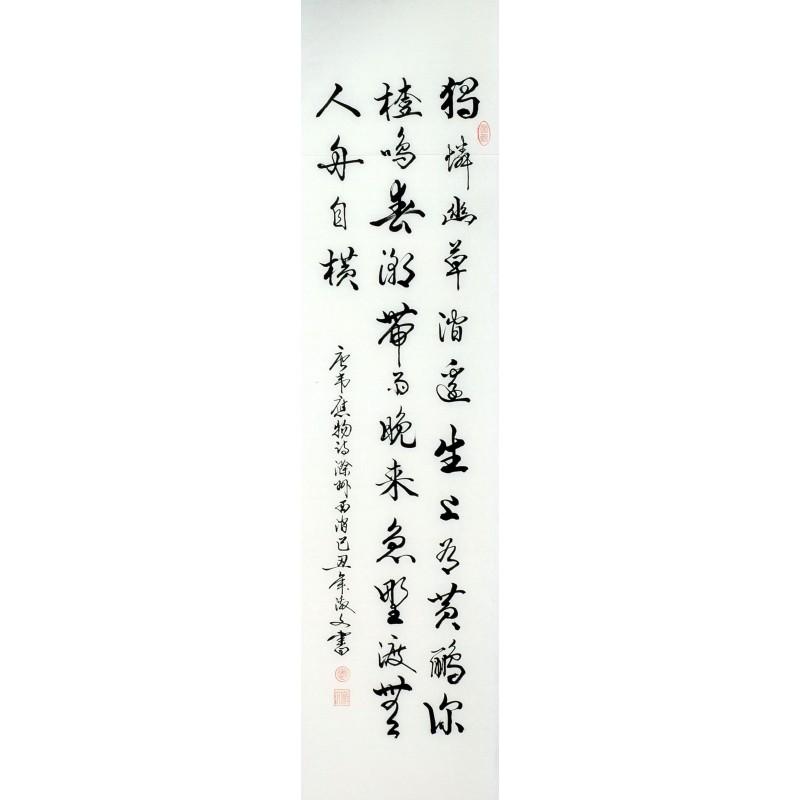 獨憐幽草澗邊生上有黄鸝深
樹鳴春潮帶雨晚來急野渡無
人舟自横
唐韋應物詩滁州西澗己丑年文書